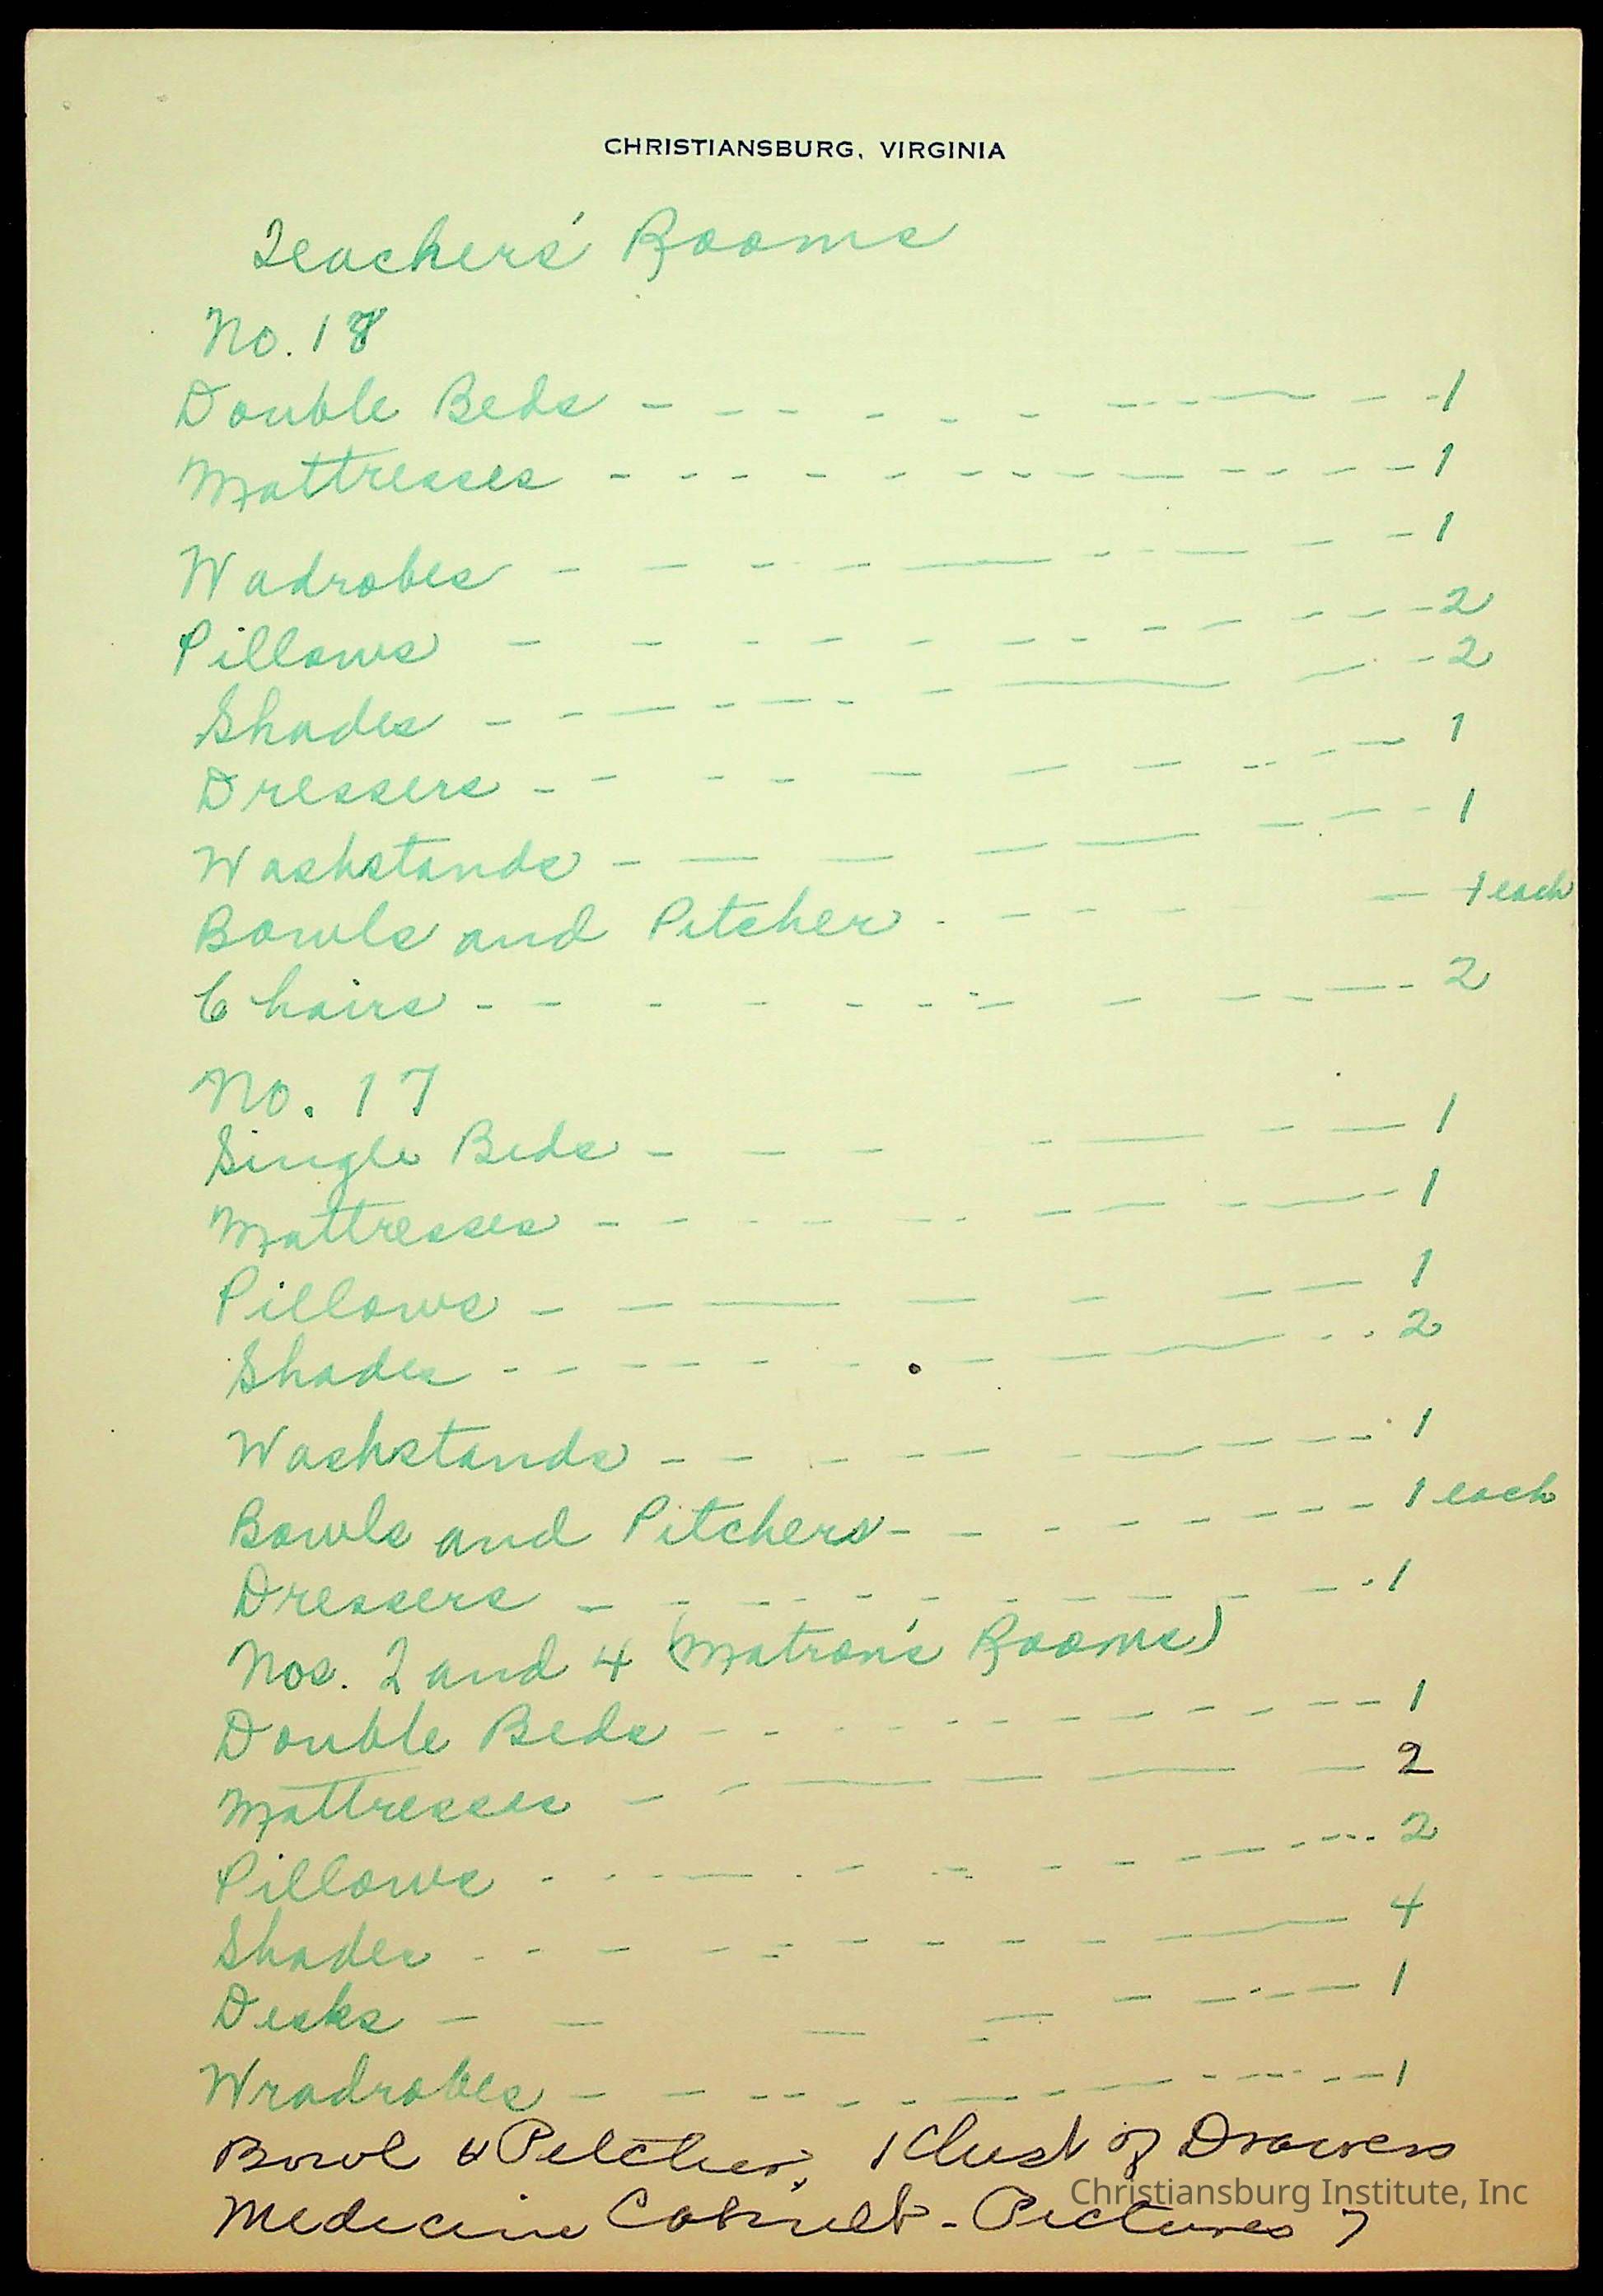 CHRISTIANSBURG, VIRGINIA
Teachers' Rooms
No. 18
Double Beds - - - - - - - - - - - - 1
Mattresses - - - - - - - - - - - - 1
Wadrobes - - - - - - - - - - 1
Pillows - - - - - - - - - - - 2
Shades - - - - - - - - - - - 2
Dressers - - - - - - - - - - 1
Washstands - - - - - - - - - 1
Bowls and Pitcher - - - - - - 1 each
Chairs - - - - - - - - - - - - 2
No. 17
Single Beds - - - - - - - 1
Mattresses - - - - - - - - - - 1
Pillows - - - - - - - - 1
Shades - - - - - - - - - - - 2
Washstands - - - - - - - - - - 1
Bowls and Pitchers - - - - - - - - 1 each
Dressers - - - - - - - - - - - 1
Nos. 2 and 4 (Matron's Rooms)
Double Beds - - - - - - - - - - - 1
Mattresses - - - - - - 2
Pillows - - - - - - - - - - - 2
Shades - - - - - - - - - - - 4
Desks - - - - - - - - 1
Wradrobes - - - - - - - - - - - 1
Bowl & Pitcher, 1 Chest of Drawers
Medicine Cabinet - Pictures 7
Christiansburg Institute, Inc